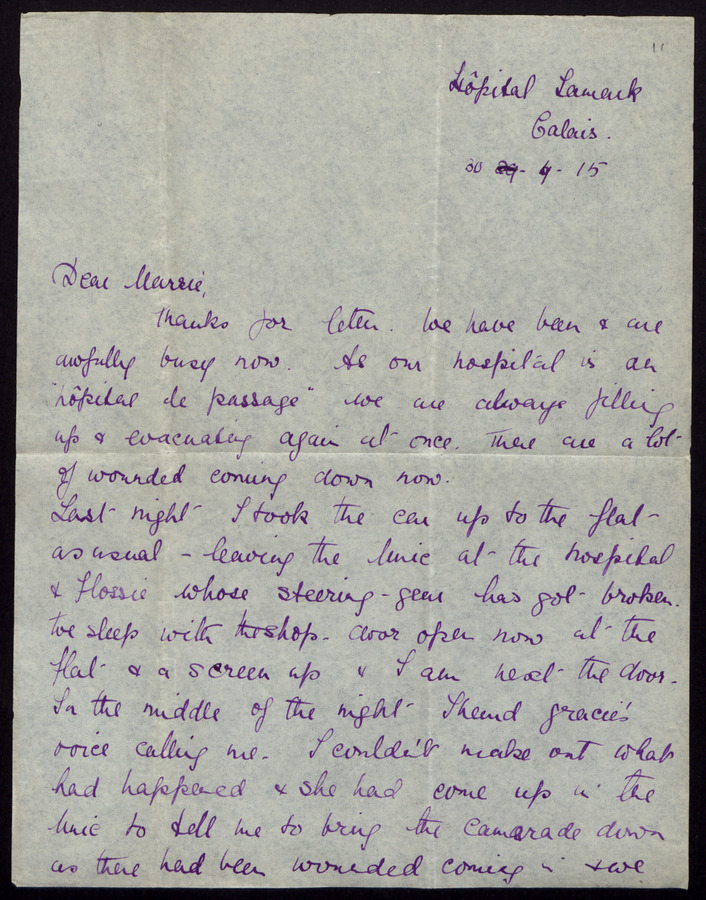 11
Hôpital Lamark
Calais.
30 29- 4- 15
Dear Marrie,
Thanks for letter. We have been & are
awfully busy now. As our hospital is an
"hôpital de passage" we are always filling
up & evacuating again at once. There are a lot
of wounded coming down now.
Last night I took the car up to the flat
as usual - leaving the Unic at the hospital
& Flossie whose steering-gear has got broken.
We sleep with the shop-door open now at the
flat & a screen up & I am next the door.
In the middle of the night I heard gracie's
voice calling me. I couldn't make out what
had happened & she had come up in the
Unic to tell me to bring the Camarade down
as there had been wounded coming in & we